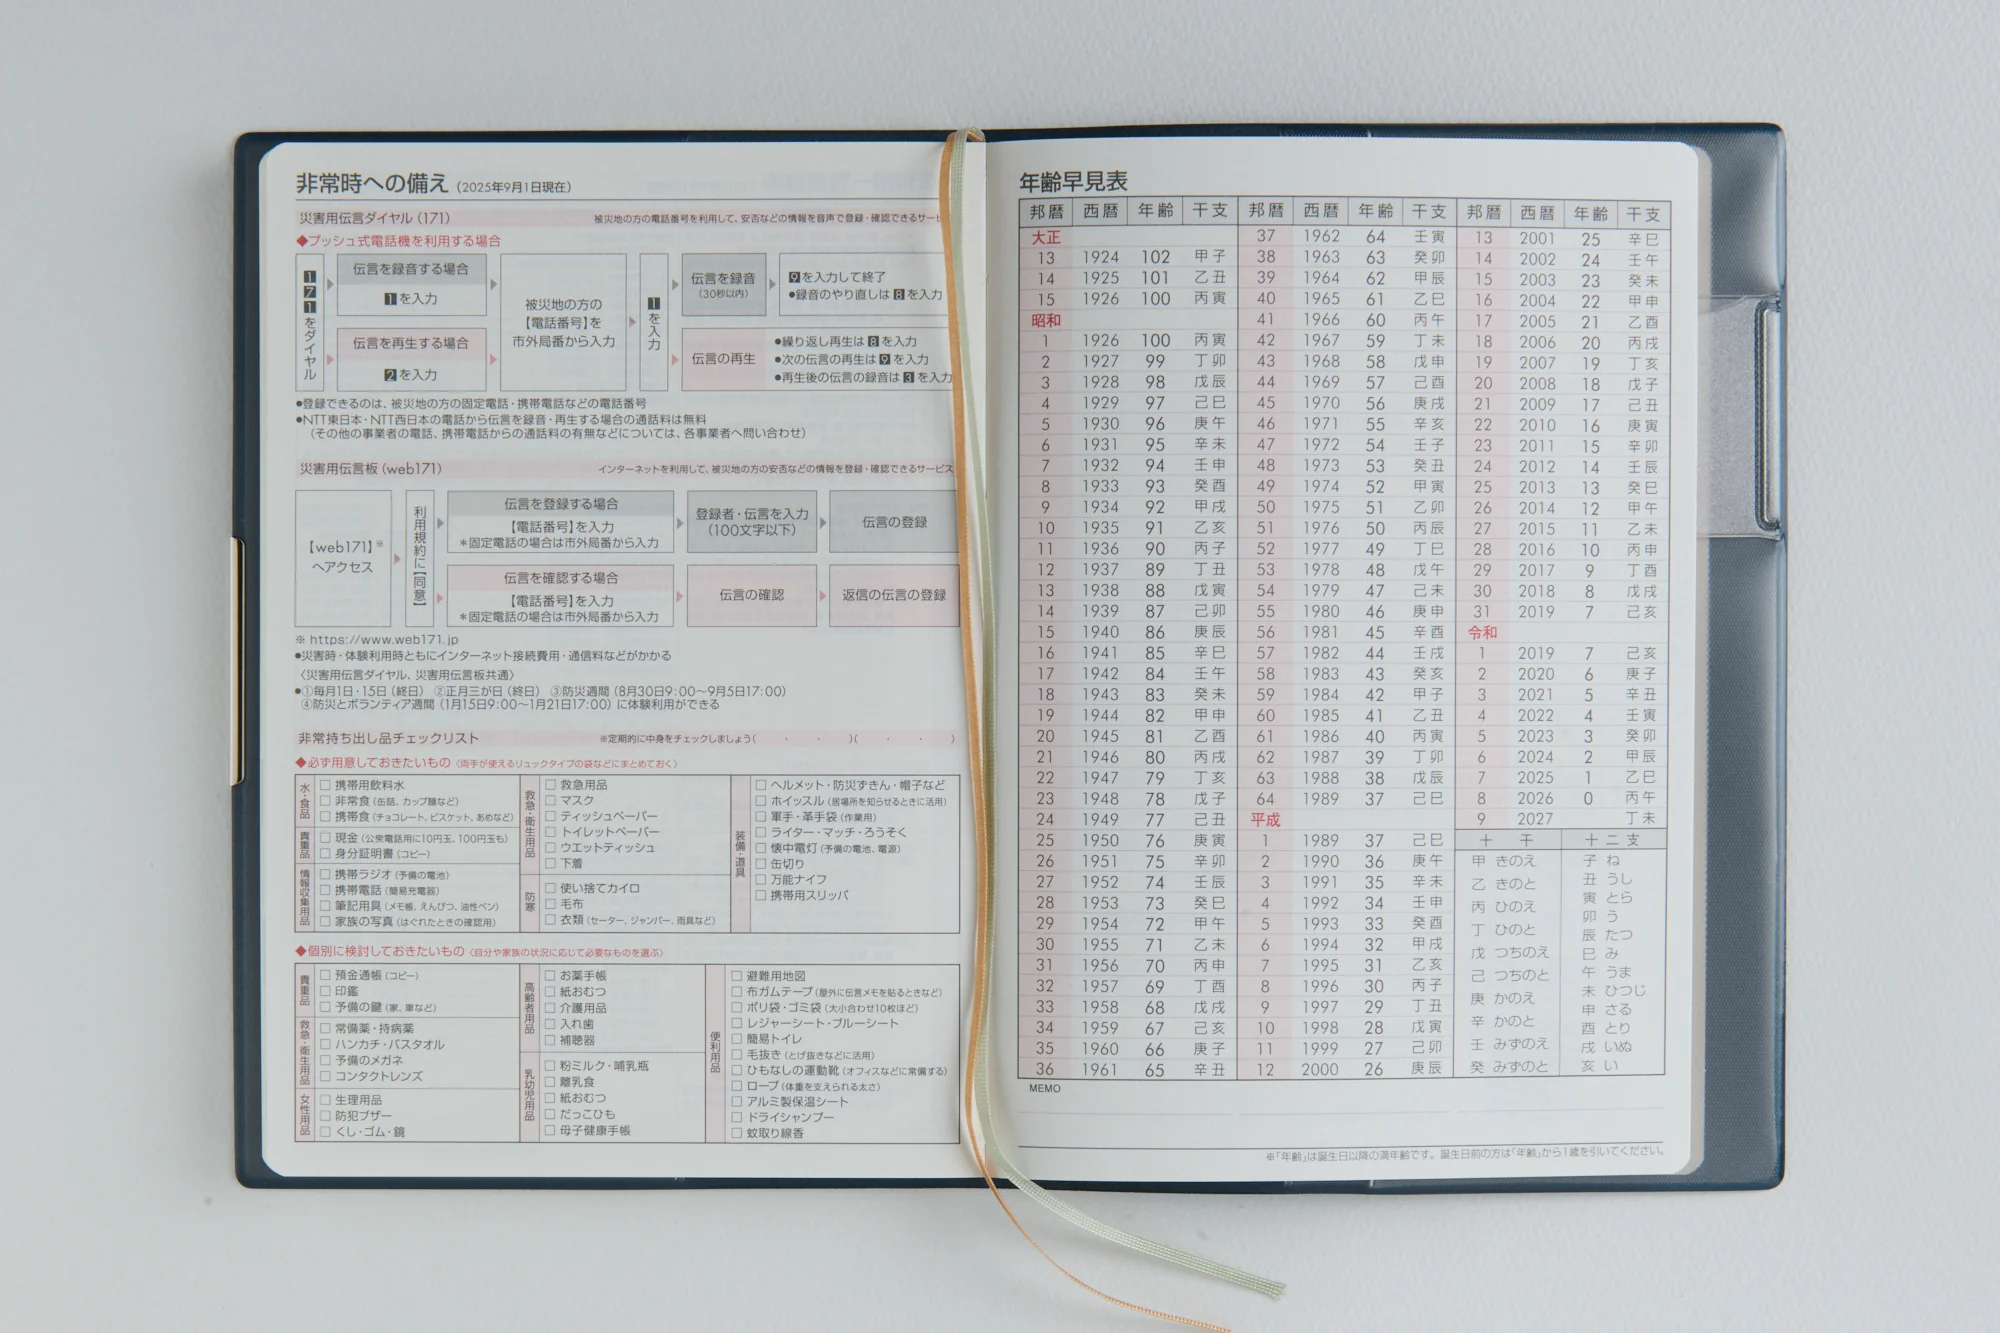 非常時への備え(2025年9月1日現在)
災害用伝言ダイヤル(171) 被災地の方の電話番号を利用して、安否などの情報を音声で登録・確認できるサービ
◆プッシュ式電話機を利用する場合
171をダイヤル
伝言を録音する場合
1を入力
伝言を再生する場合
2を入力
被災地の方の
【電話番号】を
市外局番から入力
1を入力
伝言を録音
(30秒以内)
9を入力して終了
●録音のやり直しは8を入力
伝言の再生
●繰り返し再生は8を入力
●次の伝言の再生は9を入力
●再生後の伝言の録音は3を入力
●登録できるのは、被災地の方の固定電話・携帯電話などの電話番号
●NTT東日本・NTT西日本の電話から伝言を録音・再生する場合の通話料は無料
(その他の事業者の電話、携帯電話からの通話料の有無などについては、各事業者へ問い合わせ)
災害用伝言板(web171) インターネットを利用して、被災地の方の安否などの情報を登録・確認できるサービス
【web171】※
へアクセス
利用規約に【同意】
伝言を登録する場合
【電話番号】を入力
*固定電話の場合は市外局番から入力
登録者・伝言を入力
(100文字以下)
伝言の登録
伝言を確認する場合
【電話番号】を入力
*固定電話の場合は市外局番から入力
伝言の確認
返信の伝言の登録
※ https://www.web171.jp
●災害時・体験利用時ともにインターネット接続費用・通信料などがかかる
〈災害用伝言ダイヤル、災害用伝言板共通〉
●①毎月1日・15日(終日) ②正月三が日(終日) ③防災週間(8月30日9:00〜9月5日17:00)
④防災とボランティア週間(1月15日9:00〜1月21日17:00)に体験利用ができる
非常持ち出し品チェックリスト ※定期的に中身をチェックしましょう( ・ ・ )( ・ ・ )
◆必ず用意しておきたいもの〈両手が使えるリュックタイプの袋などにまとめておく〉
水・食品
□ 携帯用飲料水
□ 非常食(缶詰、カップ麺など)
□ 携帯食(チョコレート、ビスケット、あめなど)
貴重品
□ 現金(公衆電話用に10円玉、100円玉も)
□ 身分証明書(コピー)
情報収集用品
□ 携帯ラジオ(予備の電池)
□ 携帯電話(簡易充電器)
□ 筆記用具(メモ帳、えんぴつ、油性ペン)
□ 家族の写真(はぐれたときの確認用)
救急・衛生用品
□ 救急用品
□ マスク
□ ティッシュペーパー
□ トイレットペーパー
□ ウエットティッシュ
□ 下着
防寒
□ 使い捨てカイロ
□ 毛布
□ 衣類(セーター、ジャンパー、雨具など)
装備・道具
□ ヘルメット・防災ずきん・帽子など
□ ホイッスル(居場所を知らせるときに活用)
□ 軍手・革手袋(作業用)
□ ライター・マッチ・ろうそく
□ 懐中電灯(予備の電池、電源)
□ 缶切り
□ 万能ナイフ
□ 携帯用スリッパ
◆個別に検討しておきたいもの〈自分や家族の状況に応じて必要なものを選ぶ〉
貴重品
□ 預金通帳(コピー)
□ 印鑑
□ 予備の鍵(家、車など)
救急・衛生用品
□ 常備薬・持病薬
□ ハンカチ・バスタオル
□ 予備のメガネ
□ コンタクトレンズ
女性用品
□ 生理用品
□ 防犯ブザー
□ くし・ゴム・鏡
高齢者用品
□ お薬手帳
□ 紙おむつ
□ 介護用品
□ 入れ歯
□ 補聴器
乳幼児用品
□ 粉ミルク・哺乳瓶
□ 離乳食
□ 紙おむつ
□ だっこひも
□ 母子健康手帳
便利用品
□ 避難用地図
□ 布ガムテープ(屋外に伝言メモを貼るときなど)
□ ポリ袋・ゴミ袋(大小合わせ10枚ほど)
□ レジャーシート・ブルーシート
□ 簡易トイレ
□ 毛抜き(とげ抜きなどに活用)
□ ひもなしの運動靴(オフィスなどに常備する)
□ ロープ(体重を支えられる太さ)
□ アルミ製保温シート
□ ドライシャンプー
□ 蚊取り線香
年齢早見表
邦暦 西暦 年齢 干支
大正
13 1924 102 甲子
14 1925 101 乙丑
15 1926 100 丙寅
昭和
1 1926 100 丙寅
2 1927 99 丁卯
3 1928 98 戊辰
4 1929 97 己巳
5 1930 96 庚午
6 1931 95 辛未
7 1932 94 壬申
8 1933 93 癸酉
9 1934 92 甲戌
10 1935 91 乙亥
11 1936 90 丙子
12 1937 89 丁丑
13 1938 88 戊寅
14 1939 87 己卯
15 1940 86 庚辰
16 1941 85 辛巳
17 1942 84 壬午
18 1943 83 癸未
19 1944 82 甲申
20 1945 81 乙酉
21 1946 80 丙戌
22 1947 79 丁亥
23 1948 78 戊子
24 1949 77 己丑
25 1950 76 庚寅
26 1951 75 辛卯
27 1952 74 壬辰
28 1953 73 癸巳
29 1954 72 甲午
30 1955 71 乙未
31 1956 70 丙申
32 1957 69 丁酉
33 1958 68 戊戌
34 1959 67 己亥
35 1960 66 庚子
36 1961 65 辛丑
邦暦 西暦 年齢 干支
37 1962 64 壬寅
38 1963 63 癸卯
39 1964 62 甲辰
40 1965 61 乙巳
41 1966 60 丙午
42 1967 59 丁未
43 1968 58 戊申
44 1969 57 己酉
45 1970 56 庚戌
46 1971 55 辛亥
47 1972 54 壬子
48 1973 53 癸丑
49 1974 52 甲寅
50 1975 51 乙卯
51 1976 50 丙辰
52 1977 49 丁巳
53 1978 48 戊午
54 1979 47 己未
55 1980 46 庚申
56 1981 45 辛酉
57 1982 44 壬戌
58 1983 43 癸亥
59 1984 42 甲子
60 1985 41 乙丑
61 1986 40 丙寅
62 1987 39 丁卯
63 1988 38 戊辰
64 1989 37 己巳
平成
1 1989 37 己巳
2 1990 36 庚午
3 1991 35 辛未
4 1992 34 壬申
5 1993 33 癸酉
6 1994 32 甲戌
7 1995 31 乙亥
8 1996 30 丙子
9 1997 29 丁丑
10 1998 28 戊寅
11 1999 27 己卯
12 2000 26 庚辰
邦暦 西暦 年齢 干支
13 2001 25 辛巳
14 2002 24 壬午
15 2003 23 癸未
16 2004 22 甲申
17 2005 21 乙酉
18 2006 20 丙戌
19 2007 19 丁亥
20 2008 18 戊子
21 2009 17 己丑
22 2010 16 庚寅
23 2011 15 辛卯
24 2012 14 壬辰
25 2013 13 癸巳
26 2014 12 甲午
27 2015 11 乙未
28 2016 10 丙申
29 2017 9 丁酉
30 2018 8 戊戌
31 2019 7 己亥
令和
1 2019 7 己亥
2 2020 6 庚子
3 2021 5 辛丑
4 2022 4 壬寅
5 2023 3 癸卯
6 2024 2 甲辰
7 2025 1 乙巳
8 2026 0 丙午
9 2027 丁未
十干
甲 きのえ
乙 きのと
丙 ひのえ
丁 ひのと
戊 つちのえ
己 つちのと
庚 かのえ
辛 かのと
壬 みずのえ
癸 みずのと
十二支
子 ね
丑 うし
寅 とら
卯 う
辰 たつ
巳 み
午 うま
未 ひつじ
申 さる
酉 とり
戌 いぬ
亥 い
MEMO
※「年齢」は誕生日以降の満年齢です。誕生日前の方は「年齢」から1歳を引いてください。